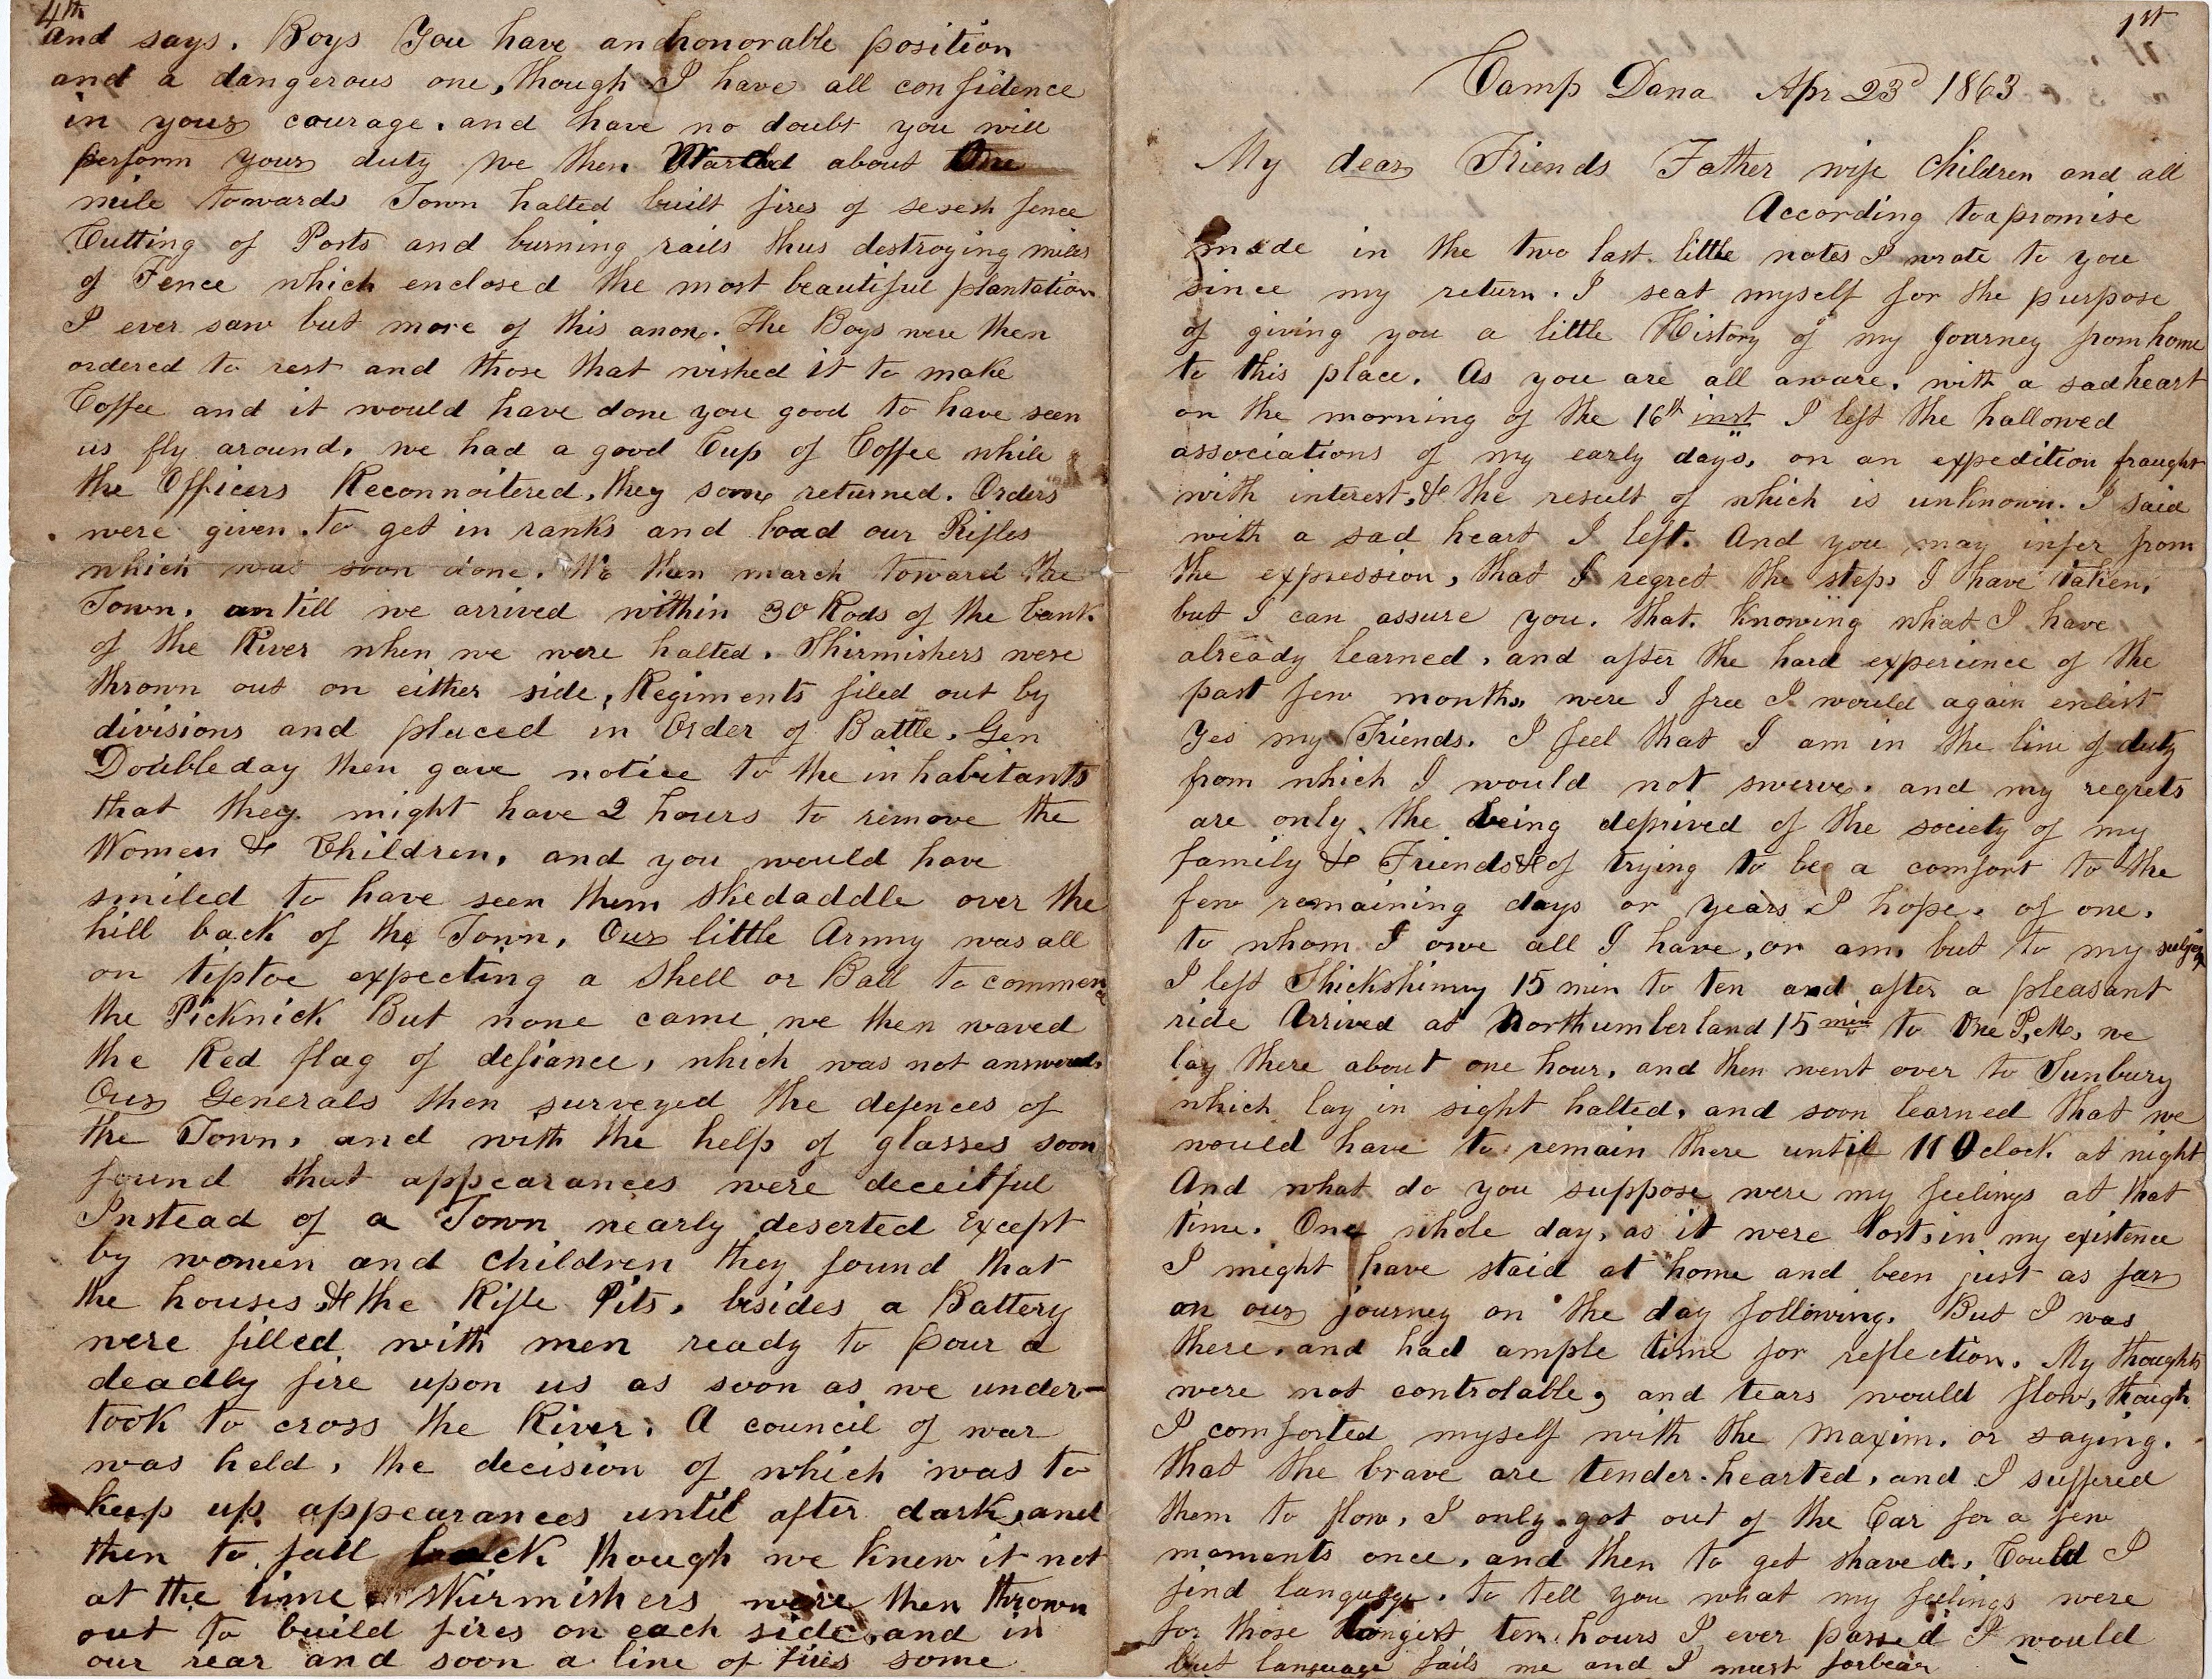 4th
and says. Boys You have an honorable position
and a dangerous one, though I have all confidence
in your courage. and have no doubt you will
perform your duty we then Marched about One
mile towards Town halted built fires of sesesh fence
Cutting of Posts and burning rails thus destroying miles
of Fence which enclosed the most beautiful plantation
I ever saw but more of this anon. The Boys were then
ordered to rest and those that wished it to make
Coffee and it would have done you good to have seen
us fly around. we had a good Cup of Coffee while
the Officers Reconnoitered, they soon returned. Orders
were given to get in ranks and load our Rifles
which was soon done. We then march toward the
Town. untill we arrived within 30 Rods of the bank
of the River when we were halted. Skirmishers were
thrown out on either side, Regiments filed out by
divisions and placed in Order of Battle. Gen
Doubleday then gave notice to the inhabitants
that they might have 2 hours to remove the
Women & Children, and you would have
smiled to have seen them skedaddle over the
hill back of the Town. Our little Army was all
on tiptoe expecting a Shell or Ball to commence
the Picknick But none came, we then waved
the Red flag of defiance, which was not answered.
Our Generals then surveyed the defences of
the Town, and with the help of glasses soon
found that appearances were deceitful
Instead of a Town nearly deserted Except
by women and children they found that
the houses & the Rifle Pits. besides a Battery
were filled with men ready to pour a
deadly fire upon us as soon as we under-
took to cross the River. A council of war
was held, the decision of which was to
keep up appearances until after dark, and
then to fall back though we knew it not
at the time. Skirmishers were then thrown
out to build fires on each side, and in
our rear and soon a line of fires some
1st
Camp Dana Apr 23d 1863
My dear Friends Father wife Children and all
According to a promise
made in the two last little notes I wrote to you
since my return. I seat myself for the purpose
of giving you a little History of my Journey from home
to this place. As you are all aware. with a sad heart
on the morning of the 16th inst I left the hallowed
associations of my early days, on an expedition fraught
with interest, & the result of which is unknown. I said
with a sad heart I left. And you may infer from
the expression, that I regret the steps I have taken,
but I can assure you. that. knowing what I have
already learned, and after the hard experience of the
past few months, were I free I would again enlist
Yes my Friends. I feel that I am in the line of duty
from which I would not swerve. and my regrets
are only the being deprived of the society of my
family & Friends & of trying to be a comfort to the
few remaining days or years I hope. of one.
to whom I owe all I have, or am, but to my subject
I left Shickshinny 15 min to ten and after a pleasant
ride Arrived at Northumberland 15 min to One P.M. we
lay there about one hour, and then went over to Sunbury
which lay in sight halted, and soon learned that we
would have to remain there until 11 Oclock at night
And what do you suppose were my feelings at that
time. One whole day, as it were lost, in my existence
I might have staid at home and been just as far
on our journey on the day following. But I was
there, and had ample time for reflection. My thoughts
were not controlable, and tears would flow, though
I comforted myself with the maxim. or saying.
that the brave are tender-hearted, and I suffered
them to flow, I only got out of the Car for a few
moments once, and then to get shaved. Could I
find language. to tell you what my feelings were
for those longest ten hours I ever passed I would
but language fails me and I must forbear